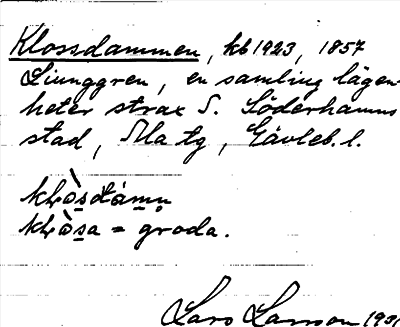 Klossdammen, kb 1923, 1857
Ljunggren, en samling lägen-
heter strax S. Söderhamns
stad, Mo tg, Gävleb. l.
kḷò̱sdámṇ
kḷò̱sa = groda.
Lars Larsson 1931